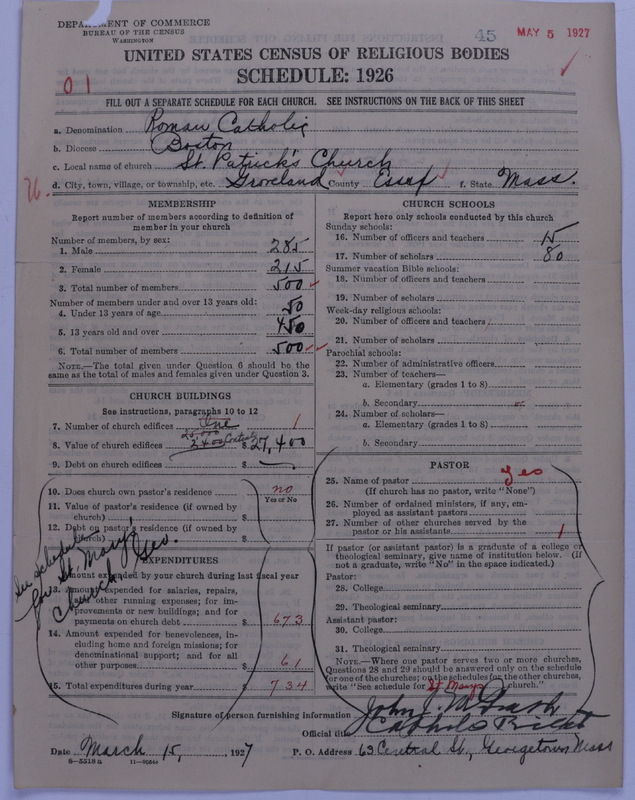 DEPARTMENT OF COMMERCE
BUREAU OF THE CENSUS
WASHINGTON
45 MAY 5 1927
UNITED STATES CENSUS OF RELIGIOUS BODIES
SCHEDULE: 1926
01
FILL OUT A SEPARATE SCHEDULE FOR EACH CHURCH. SEE INSTRUCTIONS ON THE BACK OF THIS SHEET
a. Denomination Roman Catholic
b. Diocese Boston
c. Local name of church St. Patrick's Church
d. City, town, village, or township, etc. Groveland County Essex f. State Mass.
MEMBERSHIP
Report number of members according to definition of
member in your church
Number of members, by sex:
1. Male 285
2. Female 215
3. Total number of members 500
Number of members under and over 13 years old:
4. Under 13 years of age 50
5. 13 years old and over 450
6. Total number of members 500
NOTE.—The total given under Question 6 should be the
same as the total of males and females given under Question 3.
CHURCH BUILDINGS
See instructions, paragraphs 10 to 12
7. Number of church edifices One 1
25,000
8. Value of church edifices 2400 Contents $ 27,400
9. Debt on church edifices $ —
10. Does church own pastor's residence no
Yes or No
11. Value of pastor's residence (if owned by
church) $
12. Debt on pastor's residence (if owned by
church) $
See schedule
for St. Mary's
Church, Geo.
EXPENDITURES
Amount expended by your church during last fiscal year
13. Amount expended for salaries, repairs,
and other running expenses; for im-
provements or new buildings; and for
payments on church debt $ 673
14. Amount expended for benevolences, in-
cluding home and foreign missions; for
denominational support; and for all
other purposes $ 61
15. Total expenditures during year $ 734
CHURCH SCHOOLS
Report here only schools conducted by this church
Sunday schools:
16. Number of officers and teachers 15
17. Number of scholars 80
Summer vacation Bible schools:
18. Number of officers and teachers
19. Number of scholars
Week-day religious schools:
20. Number of officers and teachers
21. Number of scholars
Parochial schools:
22. Number of administrative officers
23. Number of teachers—
a. Elementary (grades 1 to 8)
b. Secondary
24. Number of scholars—
a. Elementary (grades 1 to 8)
b. Secondary
PASTOR
25. Name of pastor yes
(If church has no pastor, write "None")
26. Number of ordained ministers, if any, em-
ployed as assistant pastors
27. Number of other churches served by the
pastor or his assistants 1
If pastor (or assistant pastor) is a graduate of a college or
theological seminary, give name of institution below. (If
not a graduate, write "No" in the space indicated.)
Pastor:
28. College
29. Theological seminary
Assistant pastor:
30. College
31. Theological seminary
NOTE.—Where one pastor serves two or more churches,
Questions 28 and 29 should be answered only on the schedule
for one of the churches; on the schedules for the other churches,
write "See schedule for St Mary's church."
Signature of person furnishing information John J. McGrath
Official title Catholic Priest
Date March 15, 1927 P. O. Address 63 Central St., Georgetown Mass
8—5518 a